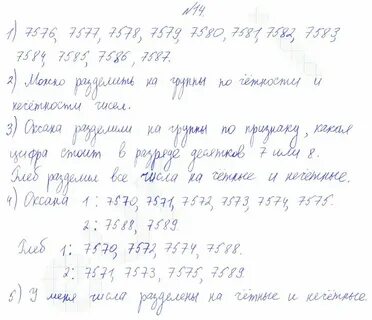 №14.
1) 7576, 7577, 7578, 7579, 7580, 7581, 7582, 7583,
7584, 7585, 7586, 7587.
2) Можно разделить на группы по чётности и
нечётности чисел.
3) Оксана разделили на группы по признаку, какая
цифра стоит в разряде десятков 7 или 8.
Глеб разделил все числа на четные и нечетные.
4) Оксана 1: 7570, 7571, 7572, 7573, 7574, 7575.
2: 7588, 7589.
Глеб 1: 7570, 7572, 7574, 7588.
2: 7571, 7573, 7575, 7589
5) У меня числа разделены на чётные и нечётные.